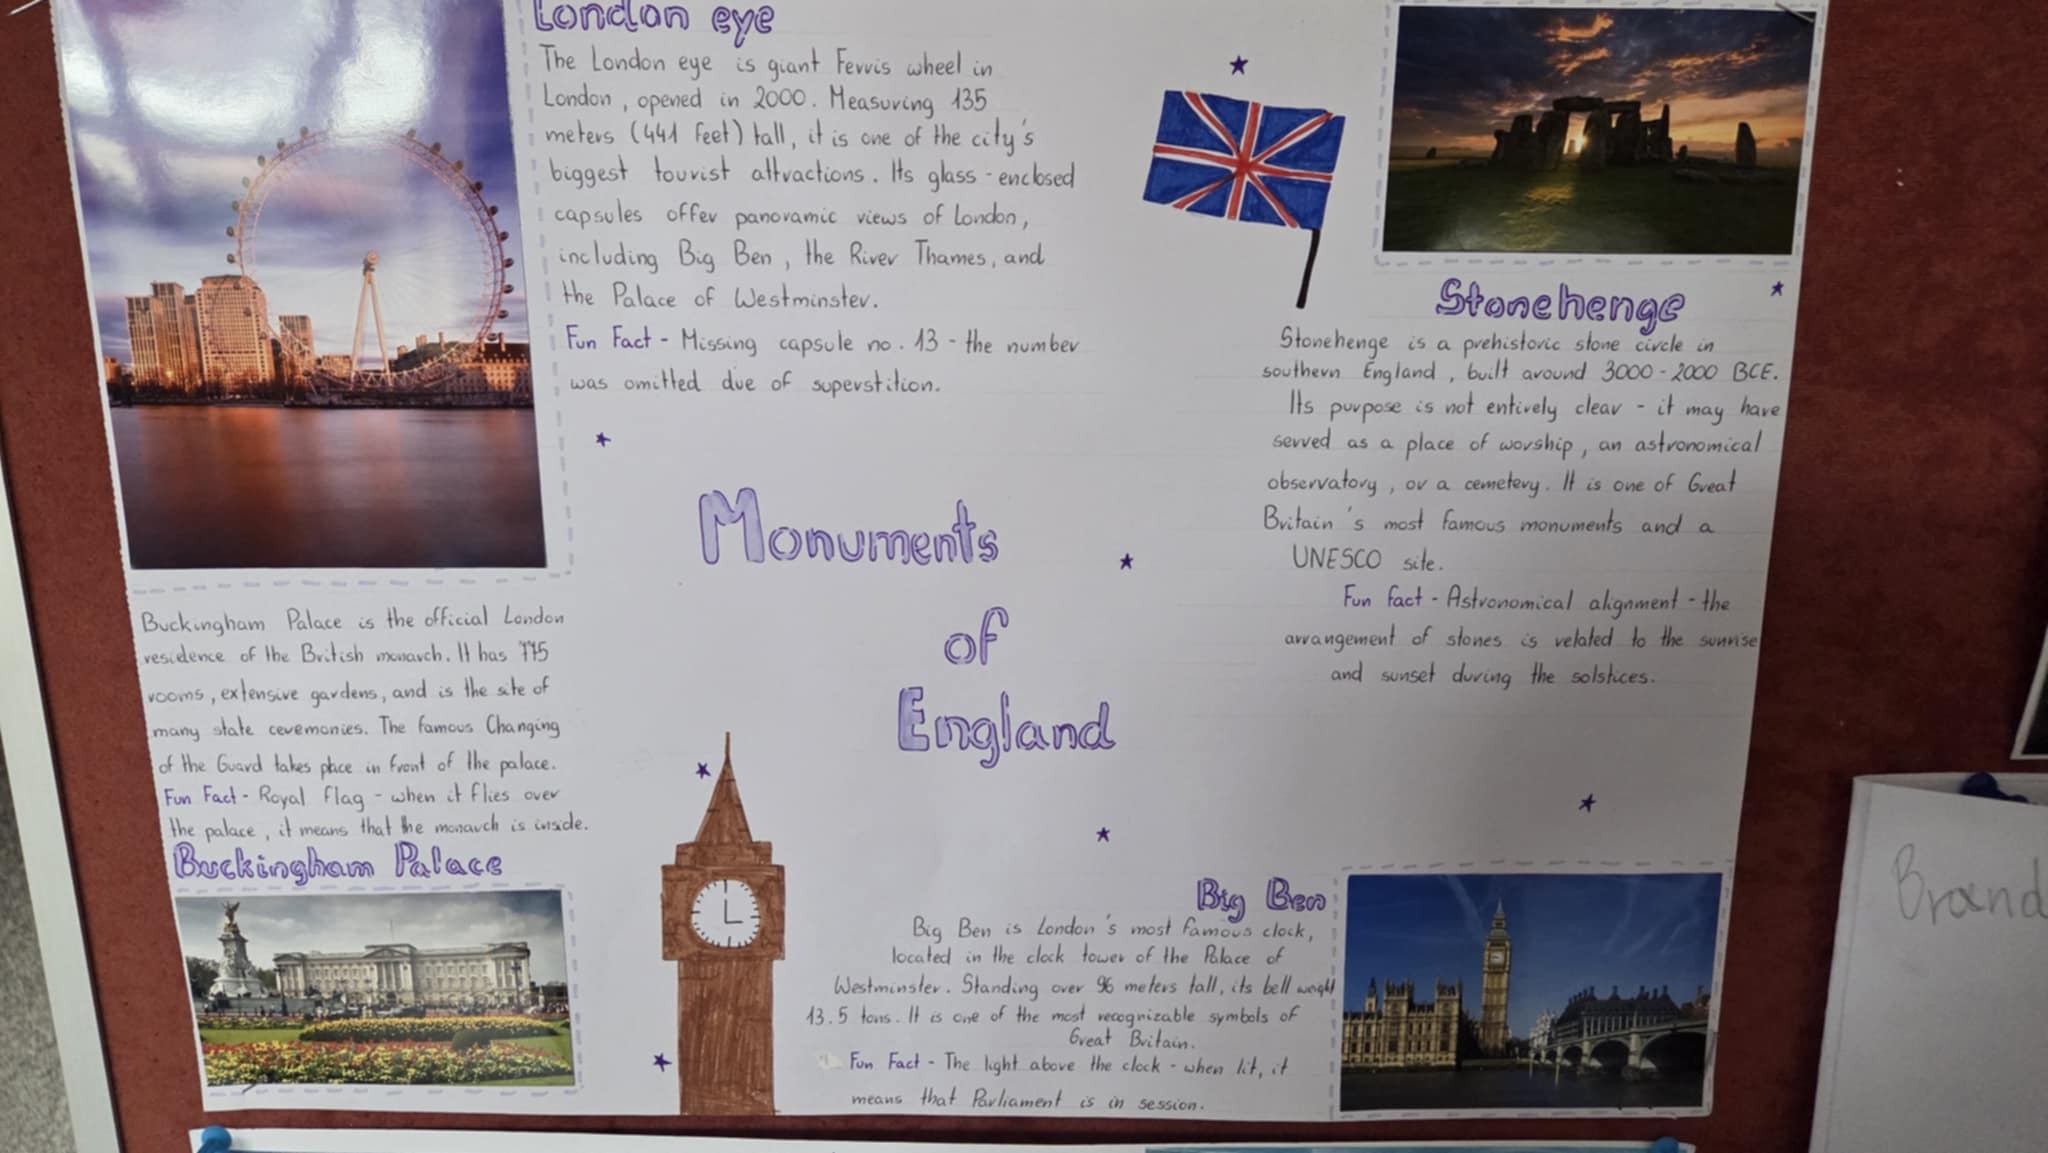 London eye
The London eye is giant Ferris wheel in
London, opened in 2000. Measuring 135
meters (441 feet) tall, it is one of the city's
biggest tourist attractions. Its glass-enclosed
capsules offer panoramic views of London,
including Big Ben, the River Thames, and
the Palace of Westminster.
Fun Fact - Missing capsule no. 13 - the number
was omitted due of superstition.
Stonehenge
Stonehenge is a prehistoric stone circle in
southern England, built around 3000-2000 BCE.
Its purpose is not entirely clear - it may have
served as a place of worship, an astronomical
observatory, or a cemetery. It is one of Great
Britain's most famous monuments and a
UNESCO site.
Fun fact - Astronomical alignment - the
arrangement of stones is related to the sunrise
and sunset during the solstices.
Monuments
of
England
Buckingham Palace is the official London
residence of the British monarch. It has 775
rooms, extensive gardens, and is the site of
many state ceremonies. The famous Changing
of the Guard takes place in front of the palace.
Fun Fact - Royal flag - when it flies over
the palace, it means that the monarch is inside.
Buckingham Palace
Big Ben
Big Ben is London's most famous clock,
located in the clock tower of the Palace of
Westminster. Standing over 96 meters tall, its bell weight
13.5 tons. It is one of the most recognizable symbols of
Great Britain.
Fun Fact - The light above the clock - when lit, it
means that Parliament is in session.
Brand